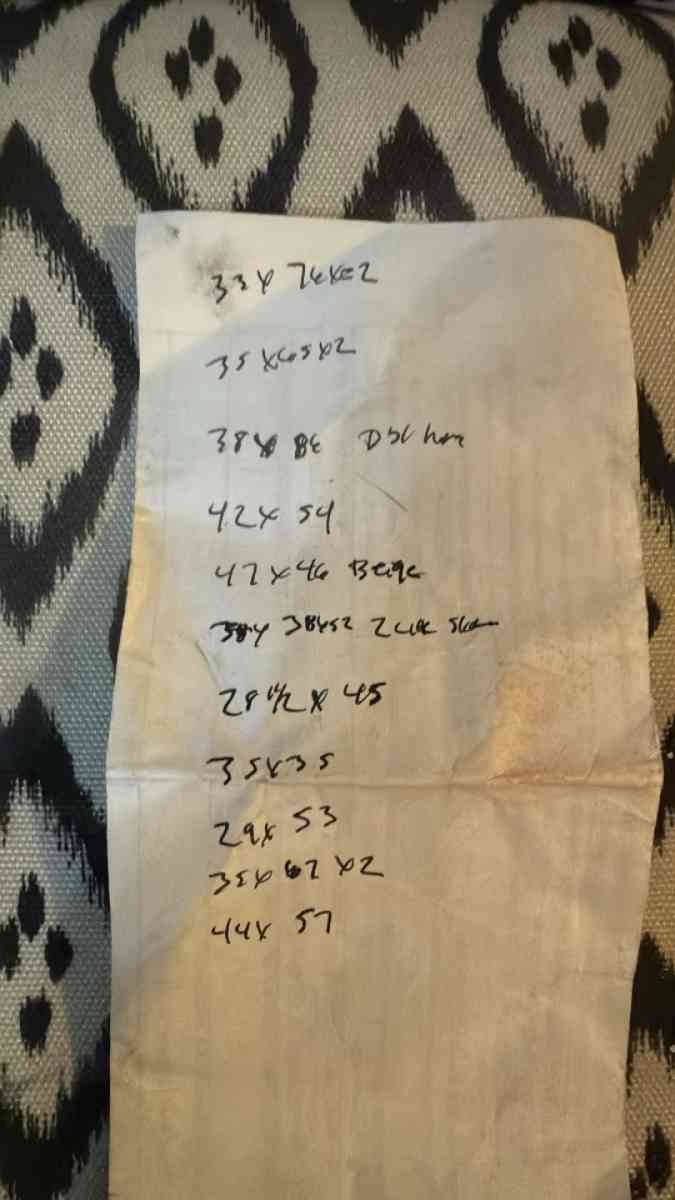 33 X 76 X 2
35 X 65 X 2
38 X 86 Dbl hem
42 X 54
47 X 46 Beige
38 X 52 2
28 1/2 X 45
35 X 35
29 X 53
35 X 62 X 2
44 X 57